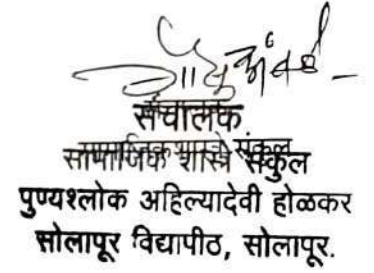 संचालक
सामाजिक शास्त्रे संकुल
पुण्यश्लोक अहिल्यादेवी होळकर
सोलापूर विद्यापीठ, सोलापूर.